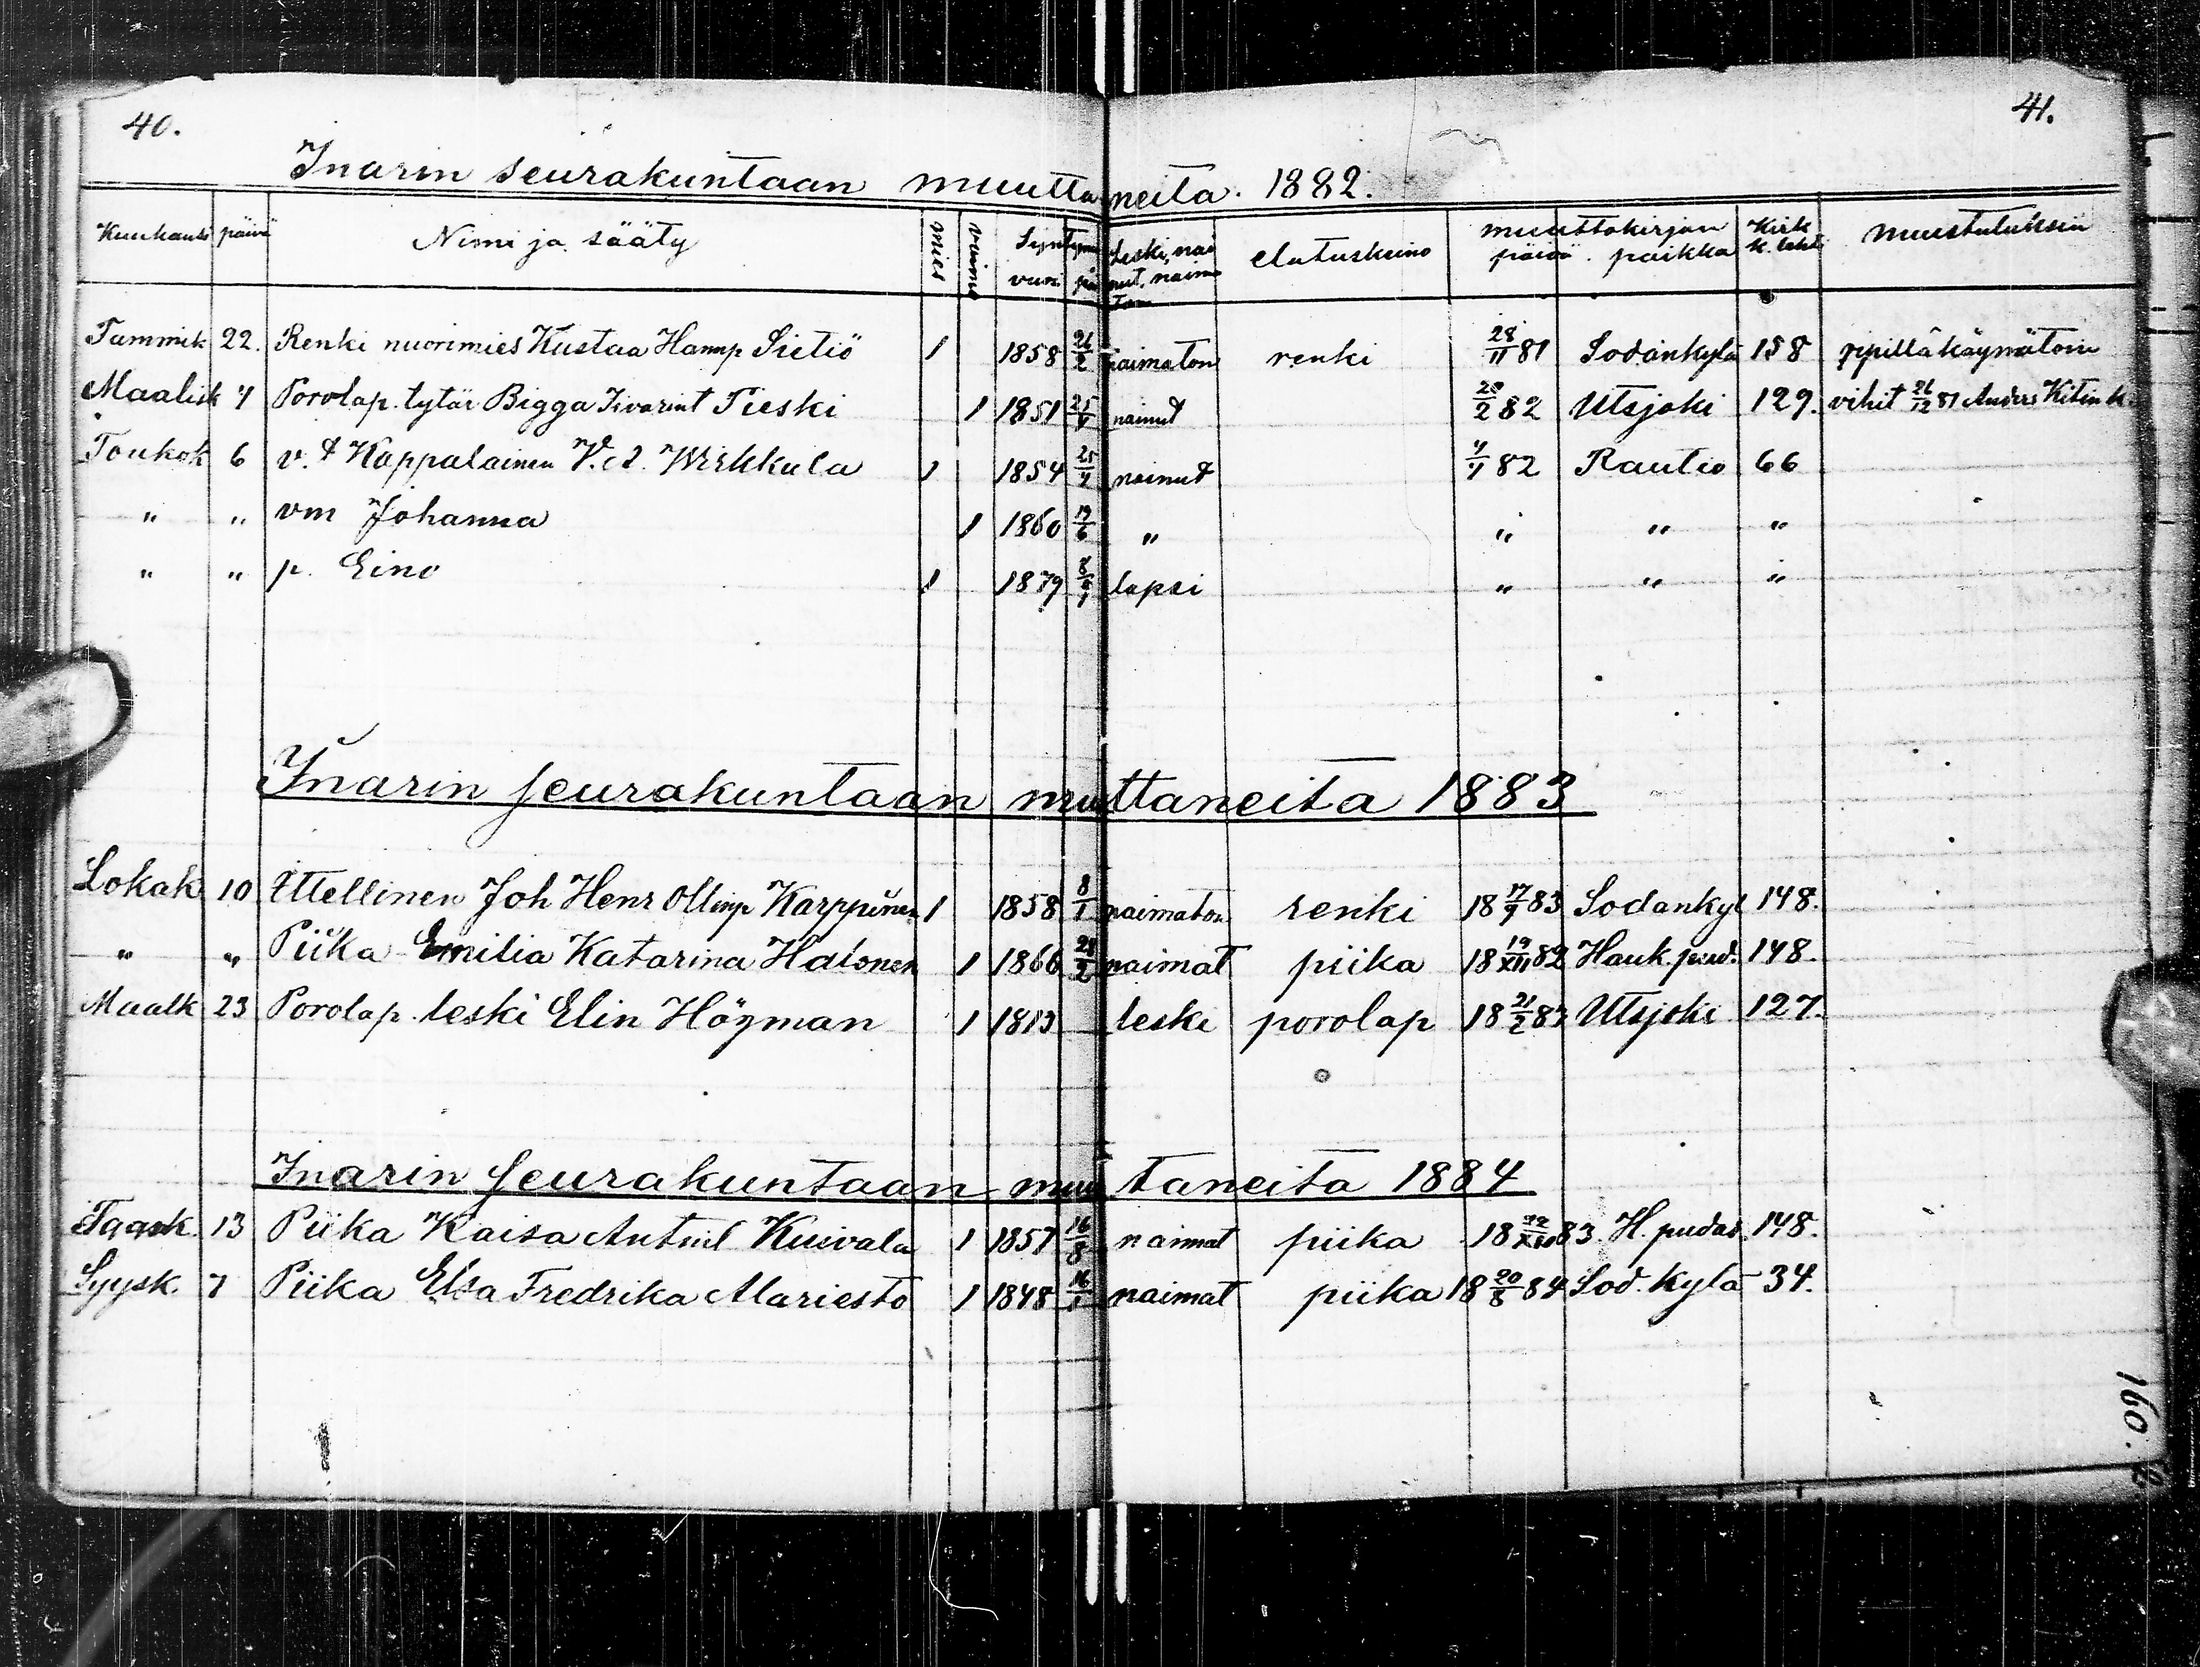 40.
41.
Inarin seurakuntaan muuttaneita. 1882.
Kuukausi päivä Nimi ja sääty mies vaimo Syntymä vuosi pä Leski, nainut, naimaton elatuskeino muuttokirjan päivä. paikka Kirk k. lehti muistutuksia
Tammik 22. Renki nuorimies Kustaa Hannup Sietiö 1 1858 26/2 naimaton renki 28/11 81 Sodankylä 158 ripillä käymätöin
Maalisk 4 Porolap. tytär Bigga Iivarint Pieski 1 1851 25/4 nainut 20/2 82 Utsjoki 129. vihit 26/12 81 Anders Kitin k.
Toukok 6 v. t Kappalainen V. A. Wirkkula 1 1854 25/4 nainut 4/4 82 Rautio 66
" " vm Johanna 1 1860 19/6 " " " "
" " p. Eino 1 1879 8/9 lapsi " " "
Inarin seurakuntaan muuttaneita 1883
Lokak 10 Ittellinen Joh Henr Ollinp Karppinen 1 1858 8/1 naimaton renki 18 17/9 83 Sodankyl 148.
" " Piika Emilia Katarina Halonen 1 1866 28/2 naimat piika 18 19/XII 82 Hauk. pud. 148.
Maalk 23 Porolap. leski Elin Högman 1 1813 leski porolap 18 21/2 83 Utsjoki 127.
Inarin seurakuntaan muutaneita 1884
13 Piika Kaisa Antint Kuivala 1 1857 16/8 naimat piika 18 22/XII 83. H. pudas. 148.
Syysk. 7 Piika Elsa Fredrika Mariesto 1 1848 16/1 naimat piika 18 20/8 84 Sod. kylä 34.
160.